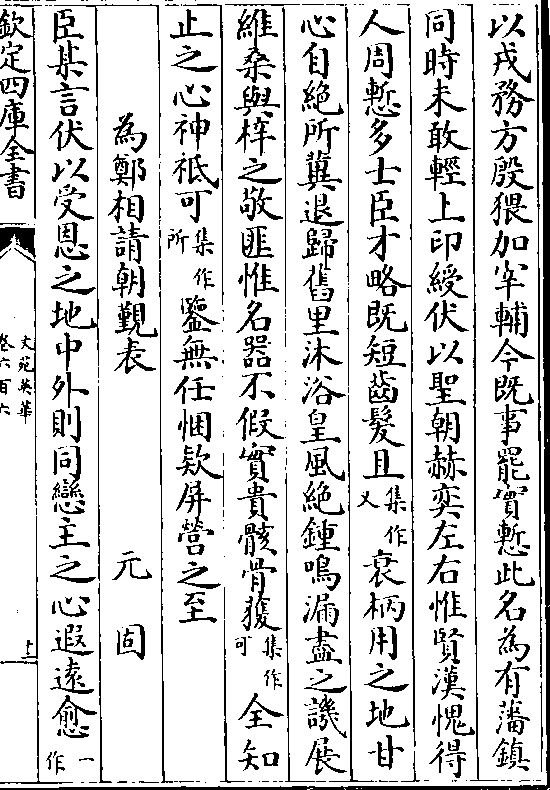 以戎務方殷猥加宰輔今既事罷實慙此名為有藩鎮
同時未敢輕上印綬伏以聖朝赫奕左右惟賢漢愧得
人周慙多士臣才略既短齒髮且集作又衰柄用之地甘
心自絶所冀退歸舊里沐浴皇風絶鍾鳴漏盡之譏展
維桑與梓之敬匪惟名器不假實貴骸骨獲集作可全知
止之心神祇可集作所鑒無任悃欵屏營之至
為鄭相請朝覲表 元固
臣某言伏以受恩之地中外則同戀主之心遐遠愈一作
欽定四庫全書
文苑英華
卷六百六
十二